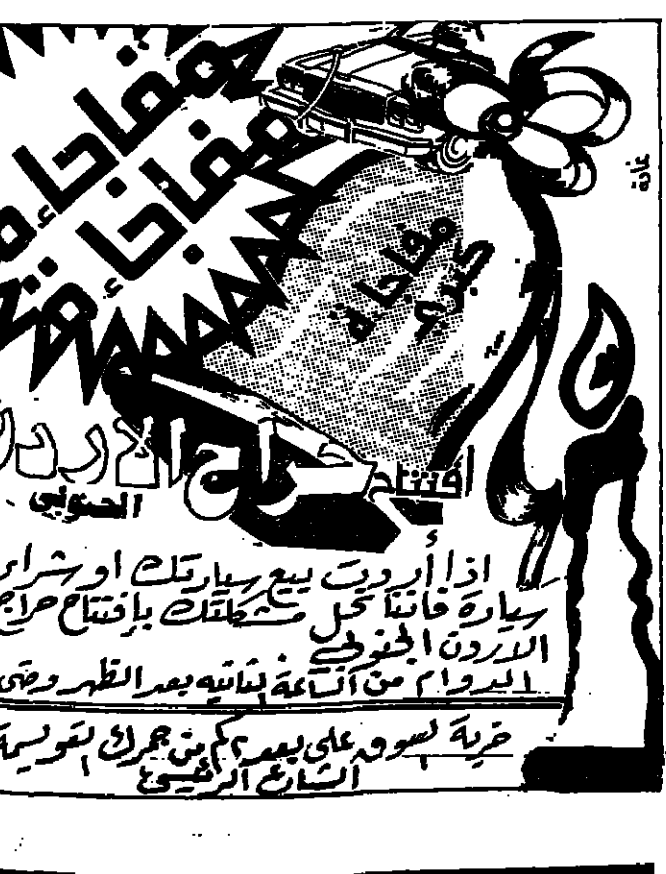 مفاجإة
مفاجإة
غادة
مفاجاة
كبرى
افتتاح حراج الاردن
الجنوبي
اذا أردت بيع سيارتك او شراء
سيارة فاننا نحل مشكلتك بإفتتاح حراج
الاردن الجنوبي .
الدوام من الساعة الثانيه بعد الظهر وحتى
خربة السوق على بعد ٢ كم من جمرك
الشارع الرئيسي